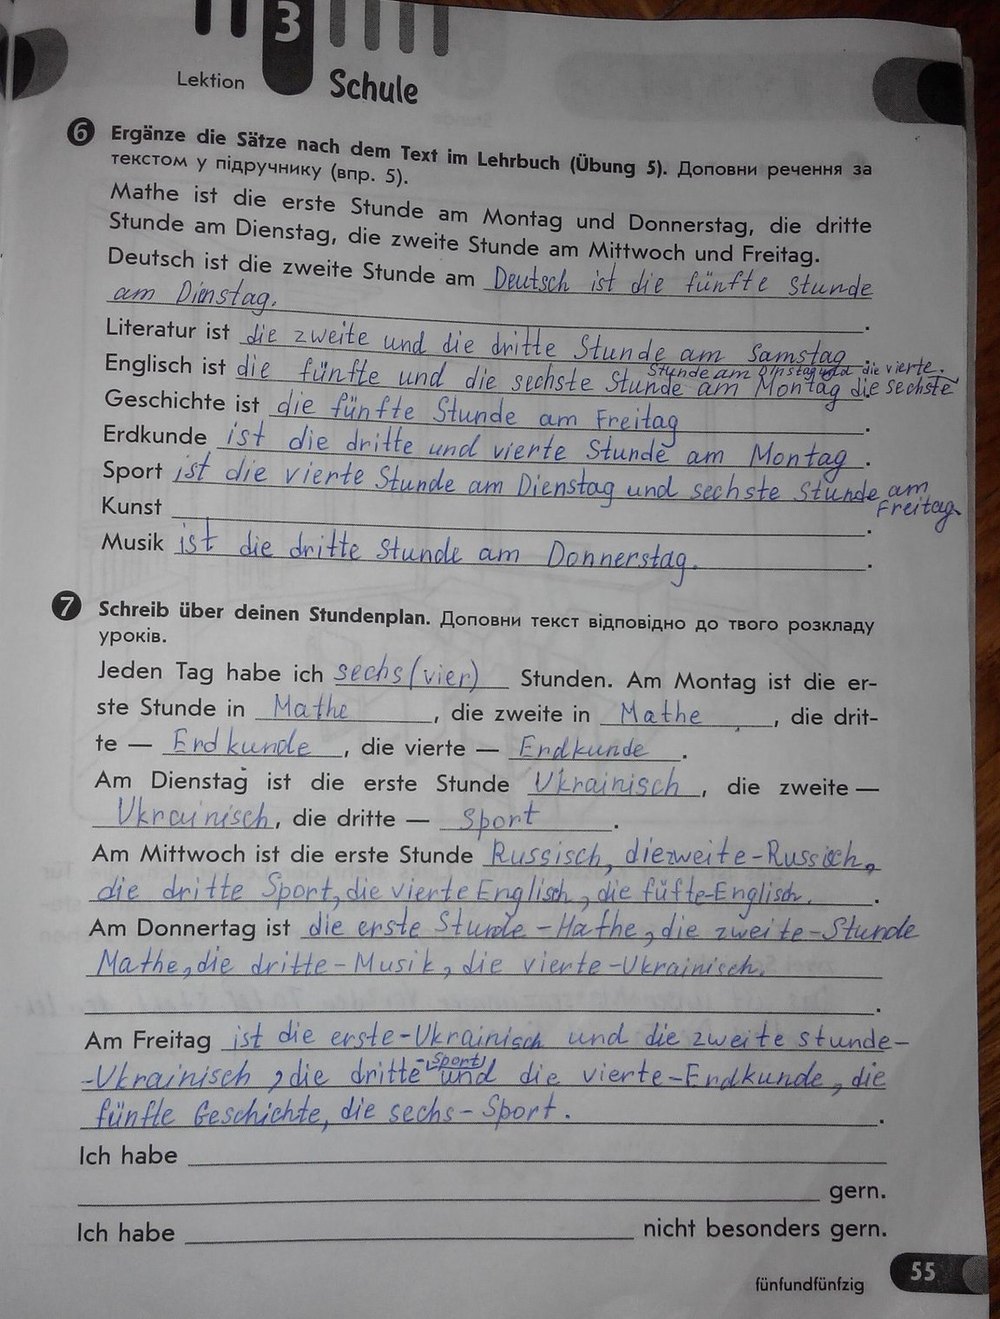 3
Lektion Schule
6 Ergänze die Sätze nach dem Text im Lehrbuch (Übung 5). Доповни речення за
текстом у підручнику (впр. 5).
Mathe ist die erste Stunde am Montag und Donnerstag, die dritte
Stunde am Dienstag, die zweite Stunde am Mittwoch und Freitag.
Deutsch ist die zweite Stunde am Deutsch ist die fünfte Stunde
am Dinstag.
Literatur ist die zweite und die dritte Stunde am Samstag.
Stunde am Dinstag und die vierte.
Englisch ist die fünfte und die sechste Stunde am Montag die sechste
Geschichte ist die fünfte Stunde am Freitag.
Erdkunde ist die dritte und vierte Stunde am Montag.
Sport ist die vierte Stunde am Dienstag und sechste Stunde am
Freitag.
Kunst
Musik ist die dritte Stunde am Donnerstag.
7 Schreib über deinen Stundenplan. Доповни текст відповідно до твого розкладу
уроків.
Jeden Tag habe ich sechs (vier) Stunden. Am Montag ist die er-
ste Stunde in Mathe, die zweite in Mathe, die drit-
te — Erdkunde, die vierte — Erdkunde.
Am Dienstag ist die erste Stunde Ukrainisch, die zweite —
Ukrainisch, die dritte — Sport.
Am Mittwoch ist die erste Stunde Russisch, die zweite-Russisch,
die dritte Sport, die vierte Englisch, die füfte-Englisch.
Am Donnertag ist die erste Stunde - Mathe, die zweite-Stunde
Mathe, die dritte-Musik, die vierte-Ukrainisch.
Am Freitag ist die erste-Ukrainisch und die zweite stunde-
-Ukrainisch, die dritte -Sport und die vierte-Erdkunde, die
fünfte Geschichte, die sechs-Sport.
Ich habe
gern.
Ich habe nicht besonders gern.
55
fünfundfünfzig